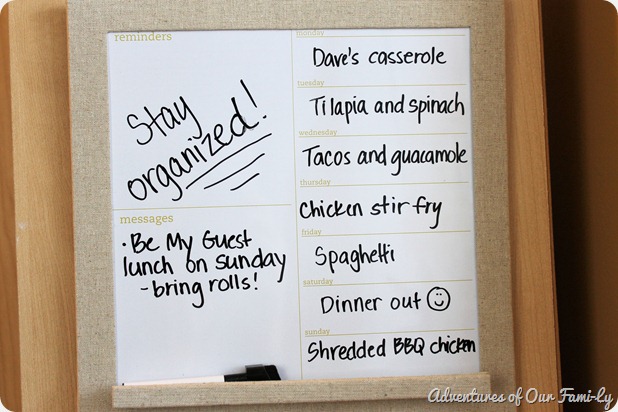 reminders
Stay
organized!
messages
·Be My Guest
lunch on Sunday
-bring rolls!
monday
Dave's casserole
tuesday
Tilapia and spinach
wednesday
Tacos and guacamole
thursday
Chicken stir fry
friday
Spaghetti
saturday
Dinner out
sunday
Shredded BBQ chicken
Adventures of Our Fami-ly